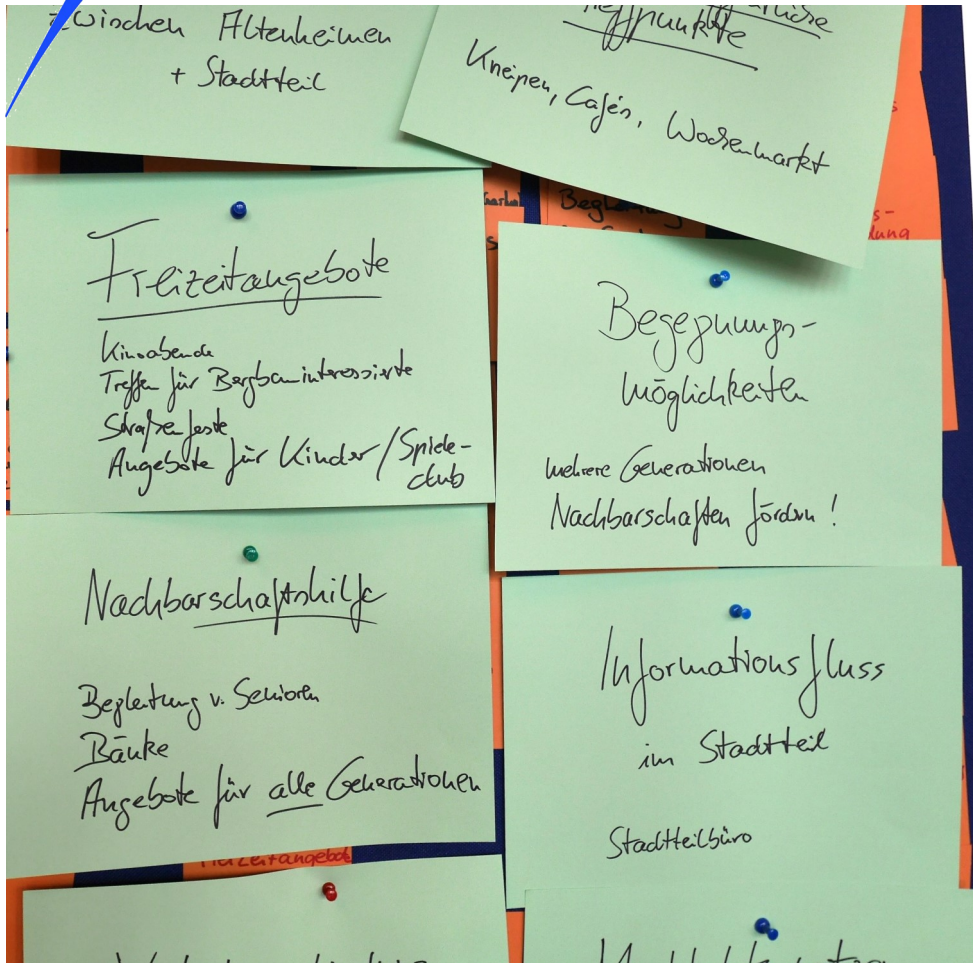 zwischen Altenheimen
+ Stadtteil
Treffpunkte
Kneipen, Cafés, Wochenmarkt
Freizeitangebote
Kinoabende
Treffen für Bergbauinteressierte
Straßenfeste
Angebote für Kinder / Spiele-
club
Begegnungs-
möglichkeiten
mehrere Generationen
Nachbarschaften fördern !
Nachbarschaftshilfe
Begleitung v. Senioren
Bänke
Angebote für alle Generationen
Informationsfluss
im Stadtteil
Stadtteilbüro
Begleitung
Freizeitangebote